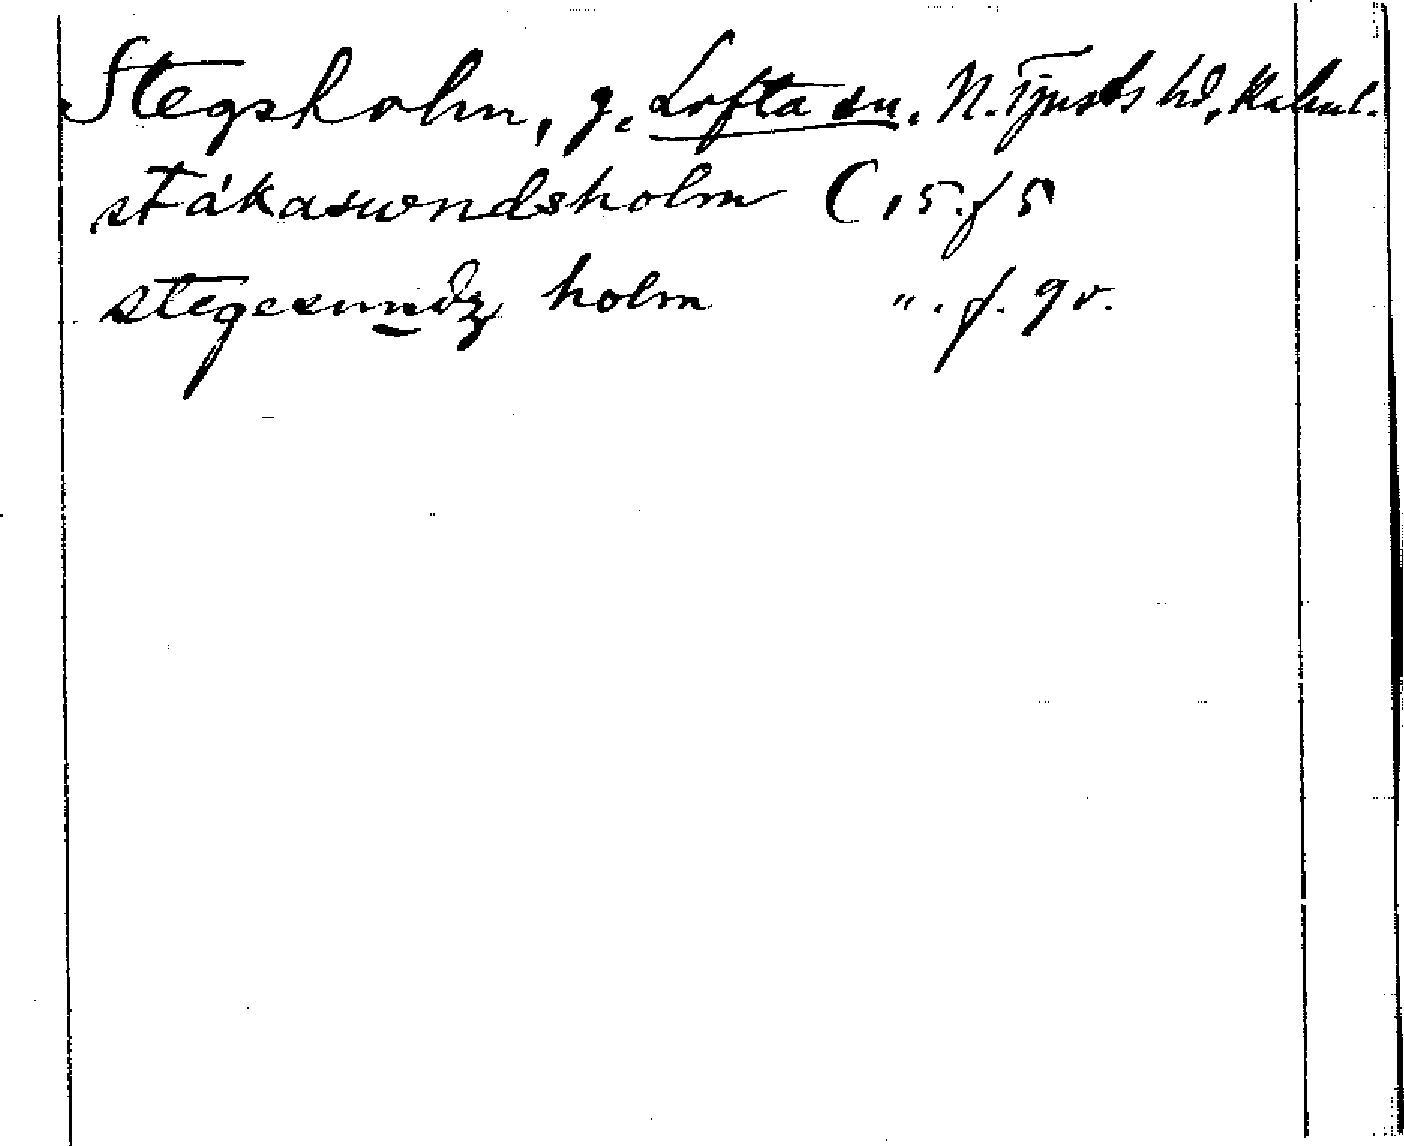 Stegsholm, g. Lofta sn. N. Tjusts hd, Kalml.
stákaswndsholm C 15. f 5
stegesundz holm ". f. 9 v.